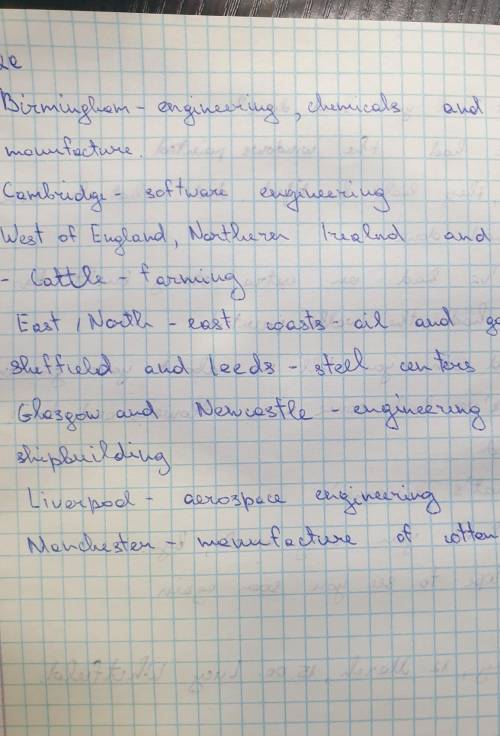 2e
Birmingham - engineering, chemicals and
manufacture.
Cambridge - software engineering
West of England, Northern Irealnd and
- Cattle - farming
East, North - east coasts - oil and ga
Sheffield and Leeds - stell centers
Glasgow and Newcastle - engineering
shipbuilding
Liverpool - aerospace engineering
Manchester - manufacture of cotton